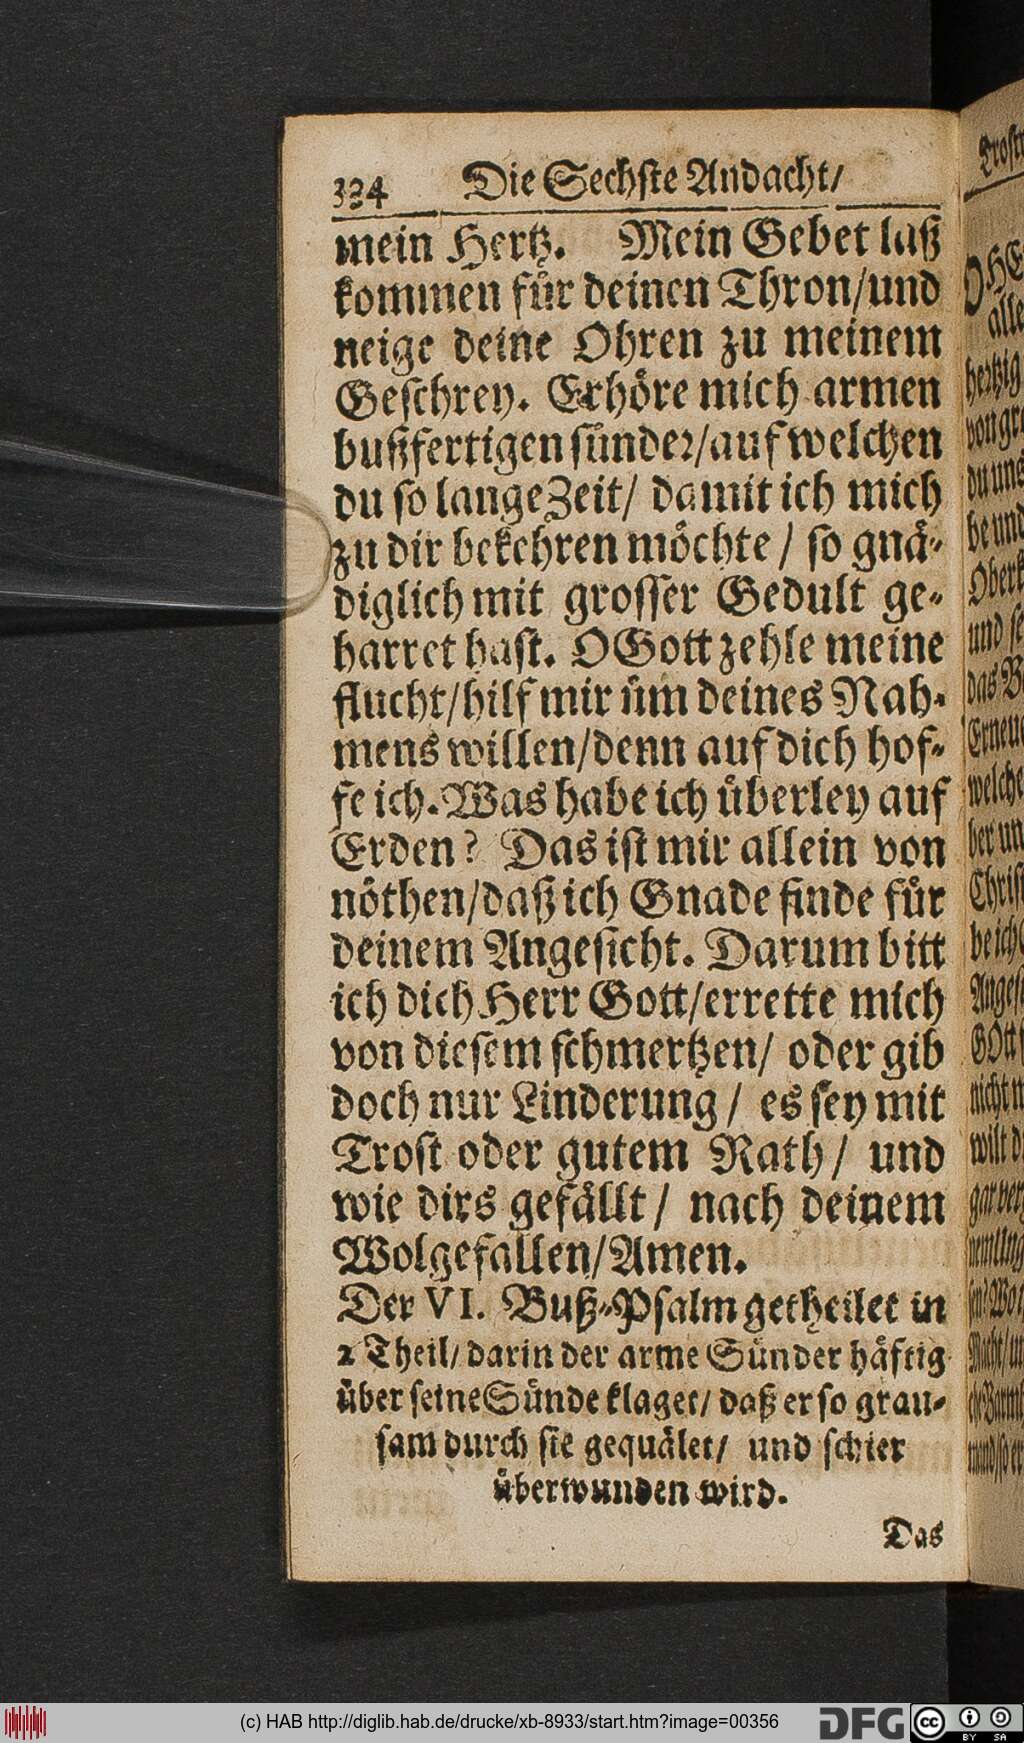 334 Die Sechste Andacht/
mein Hertz. Mein Gebet laß
kommen für deinen Thron/und
neige deine Ohren zu meinem
Geschrey. Erhöre mich armen
bußfertigen sünder/auf welchen
du so lange Zeit/ damit ich mich
zu dir bekehren möchte / so gnä-
diglich mit grosser Gedult ge-
harret hast. O Gott zehle meine
flucht/hilf mir üm deines Nah-
mens willen/denn auf dich hof-
fe ich. Was habe ich überley auf
Erden? Das ist mir allein von
nöthen/daß ich Gnade finde für
deinem Angesicht. Darum bitt
ich dich Herr Gott/errette mich
von diesem schmertzen/ oder gib
doch nur Linderung / es sey mit
Trost oder gutem Rath/ und
wie dirs gefällt/ nach deinem
Wolgefallen/Amen.
Der VI. Buß-Psalm getheilet in
2 Theil/ darin der arme Sünder häftig
über seine Sünde klaget/ daß er so grau-
sam durch sie gequälet/ und schier
überwunden wird.
Das
(c) HAB http://diglib.hab.de/drucke/xb-8933/start.htm?image=00356
DFG
cc BY SA